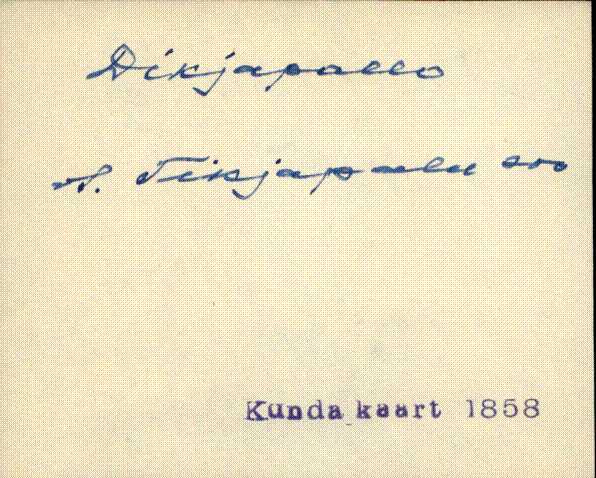 Dikjapallo
s. Tikjapalu soo
Kunda kaart 1858